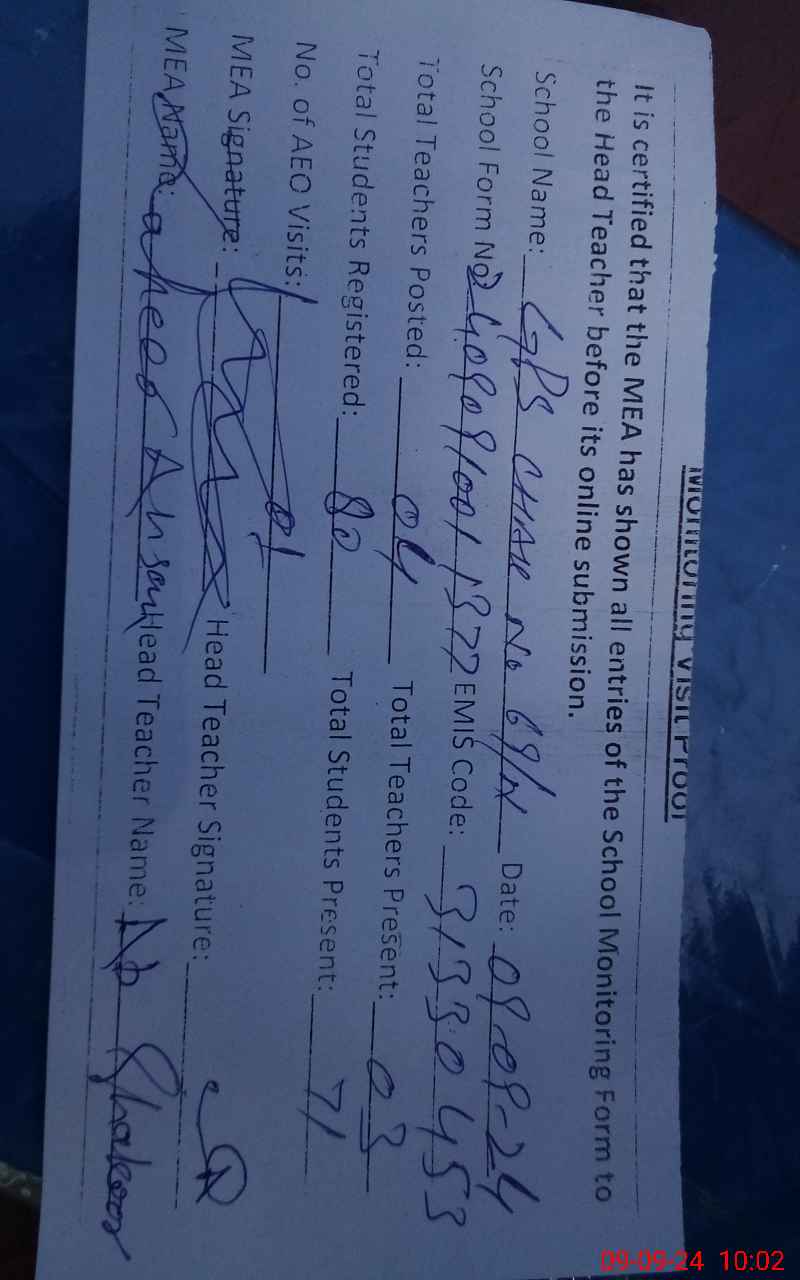 Monitoring Visit Proof
It is certified that the MEA has shown all entries of the School Monitoring Form to
the Head Teacher before its online submission.
School Name: GPS CHAK No 69/N Date: 09-09-24
School Form No: 24090910011377 EMIS Code: 31330453
Total Teachers Posted: 04 Total Teachers Present: 03
Total Students Registered: 80 Total Students Present: 71
No. of AEO Visits: 01
MEA Signature: Head Teacher Signature:
MEA Name: Ansar Head Teacher Name: Ab Shakoor
09-09-24 10:02